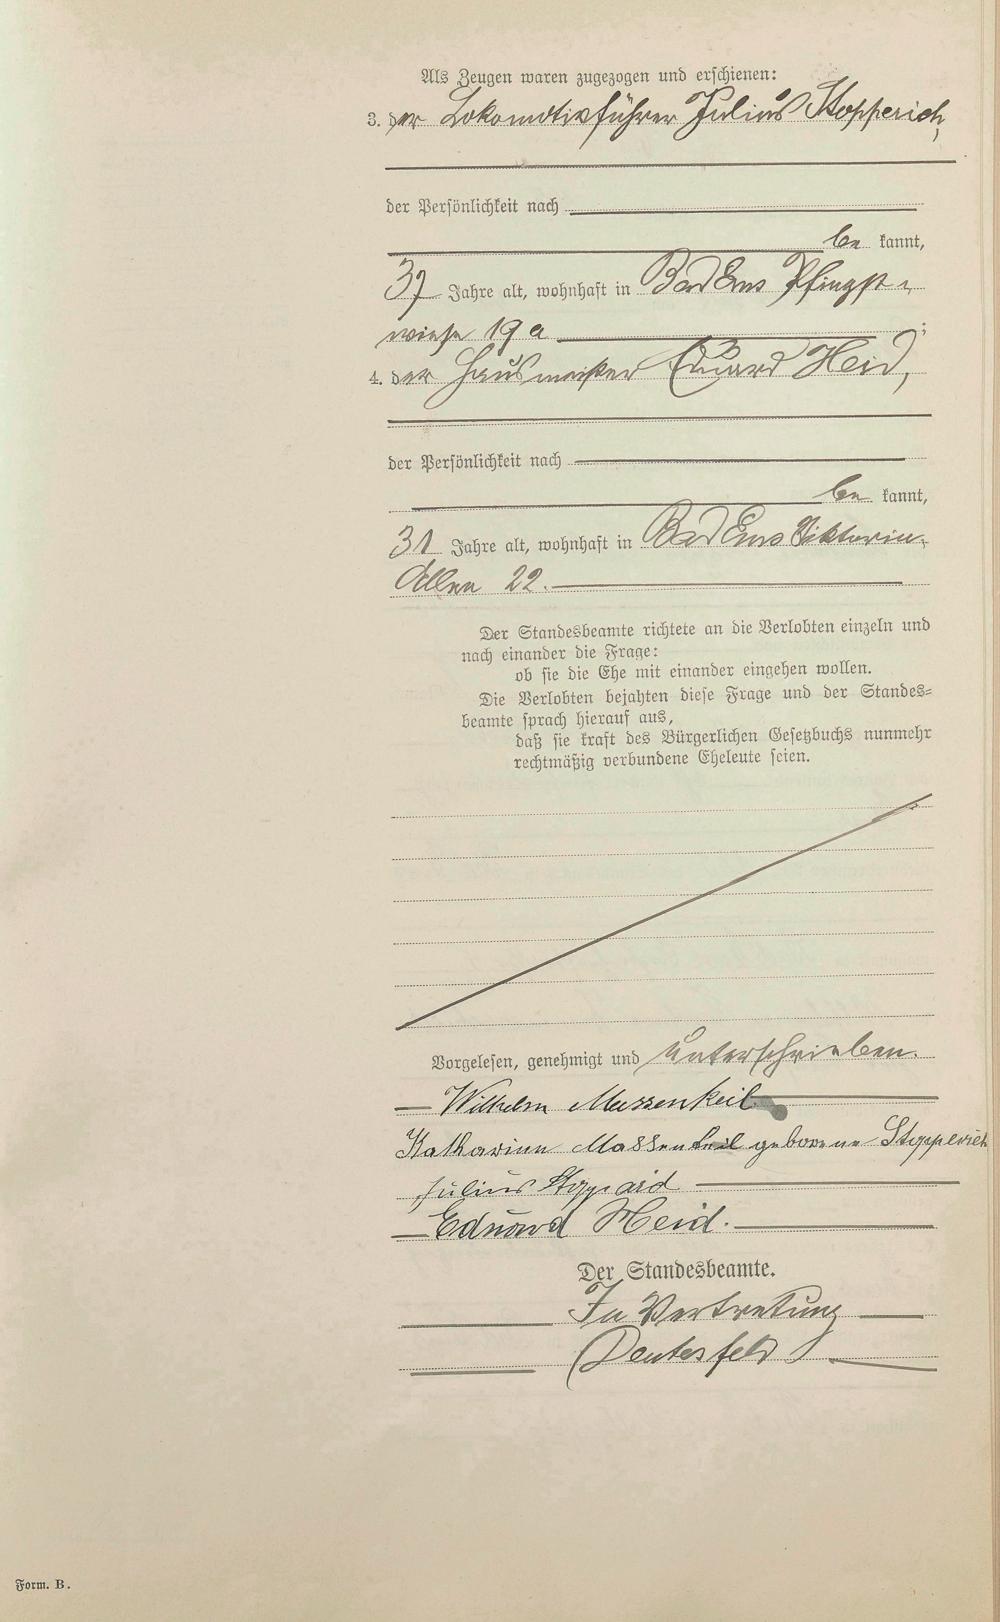 Als Zeugen waren zugezogen und erschienen:
3. der Lokomotivführer Julius Stopperich,
der Persönlichkeit nach
be kannt,
37 Jahre alt, wohnhaft in Bad Ems Pfingst-
wiese 19 a ;
4. der Hausmeister Eduard Heid,
der Persönlichkeit nach
be kannt,
31 Jahre alt, wohnhaft in Bad Ems Viktoria-
Allee 22.
Der Standesbeamte richtete an die Verlobten einzeln und
nach einander die Frage:
ob sie die Ehe mit einander eingehen wollen.
Die Verlobten bejahten diese Frage und der Standes=
beamte sprach hierauf aus,
daß sie kraft des Bürgerlichen Gesetzbuchs nunmehr
rechtmäßig verbundene Eheleute seien.
Vorgelesen, genehmigt und unterschrieben.
Wilhelm Massenkeil
Katharina Massenkeil geborene Stopperich
Julius
Eduard Heid.
Der Standesbeamte.
In Vertretung
Deutesfeld
Form. B.